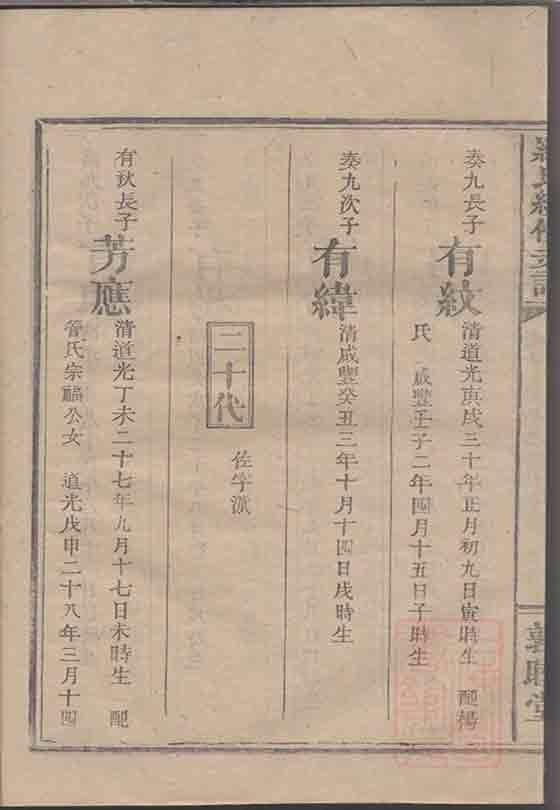 奏九長子
有紋
清道光庚戌三十年正月初九日寅時生 配楊
氏 咸豐壬子二年四月十五日子時生
奏九次子
有緯
清咸豐癸丑三年十月十四日戌時生
二十代
佐字派
有秋長子
芳應
清道光丁未二十七年九月十七日未時生 配
管氏宗福公女 道光戊申二十八年三月十四